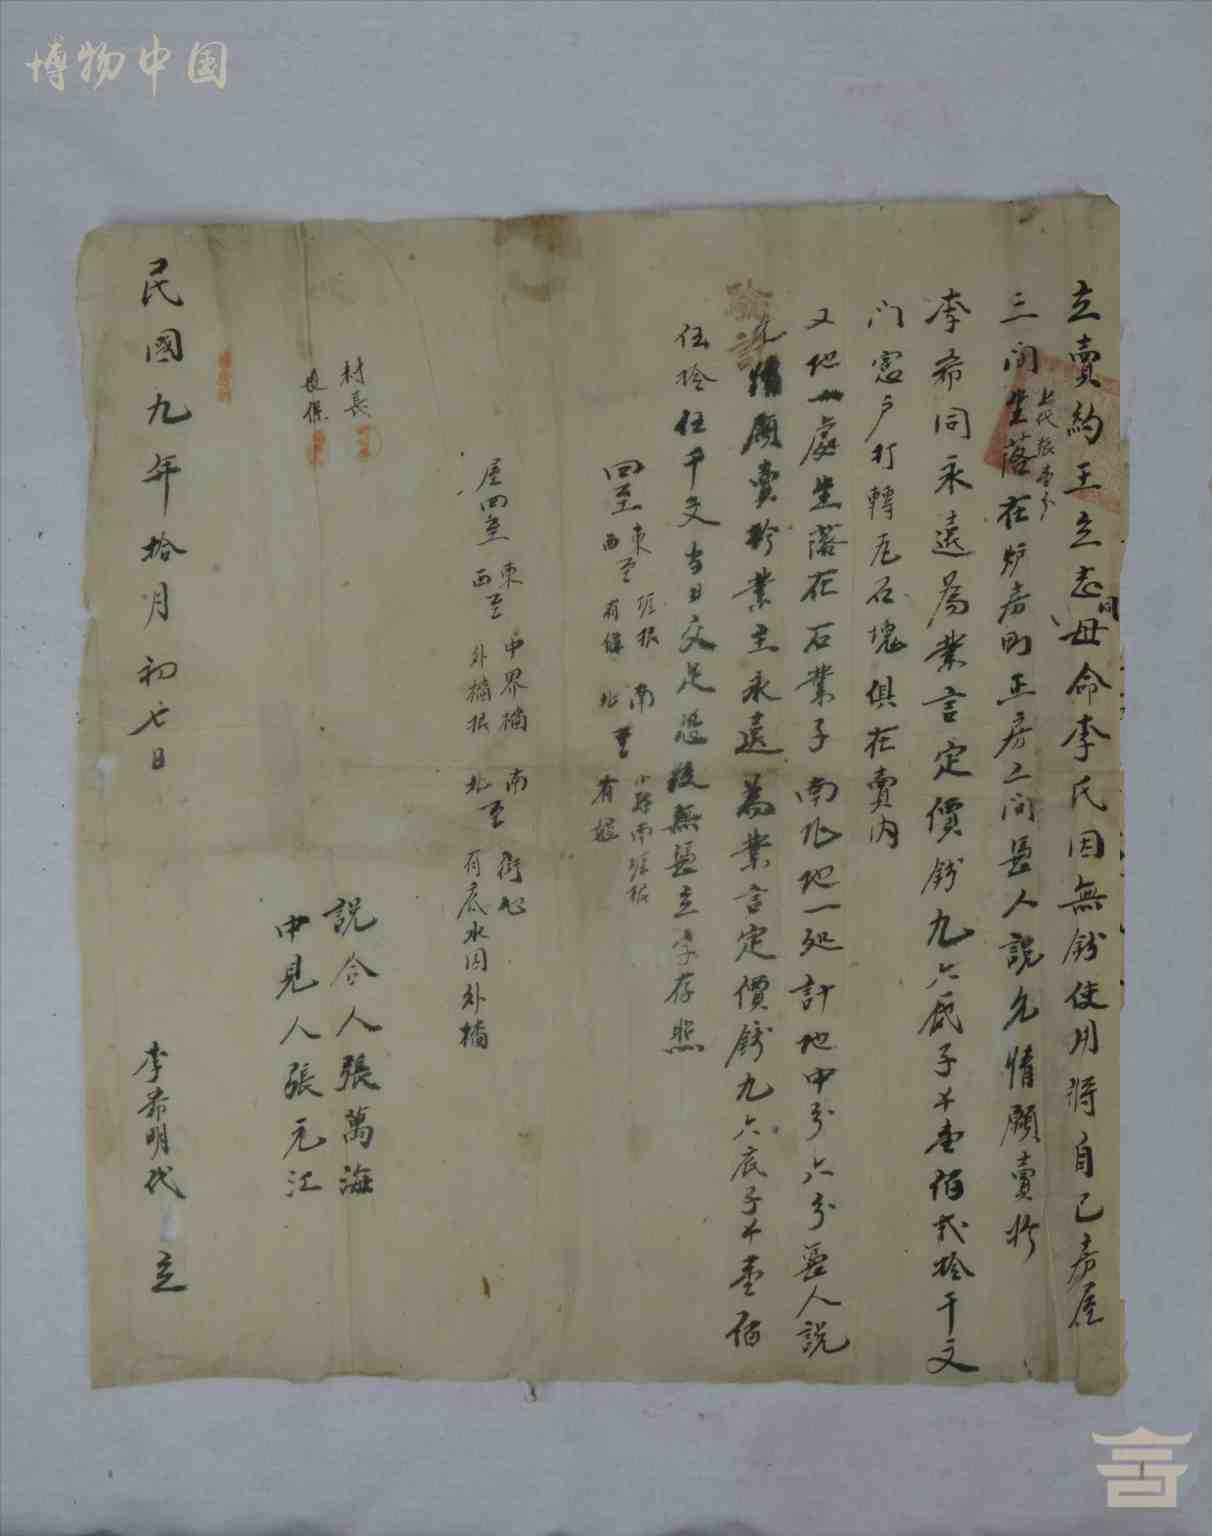 博物中国
立賣約王立志同母命李氏因無錢使用將自己房屋
三间坐落在炉房町正房三间凴人説允情願賣於
李希同永遠為業言定價錢九六底子大壹佰弍拾千文
门窓户打轉瓦石塊俱在賣内
又地一處坐落在石業子南北地一処計地中分六分凴人説
允情願賣於業主永遠為業言定價錢九六底子大壹佰
伍拾伍千文当日交足恐後無凴立字存照
四至 東至 根 南至 小路南
西至 有 北至 有
屋四至 東至 中界墻 南至 街心
西至 外墻根 北至 有底水因外墻
驗訖
村長
説合人張萬海
中見人張元江
民國九年拾月初七日 李希明代 立